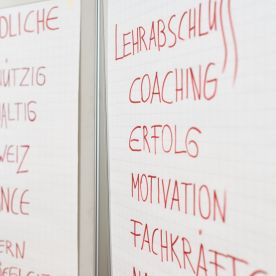 DLICHE
NÜTZIG
HALTIG
WEIZ
NCE
ERN
LEHRABSCHLUSS
COACHING
ERFOLG
MOTIVATION
FACHKRÄFT